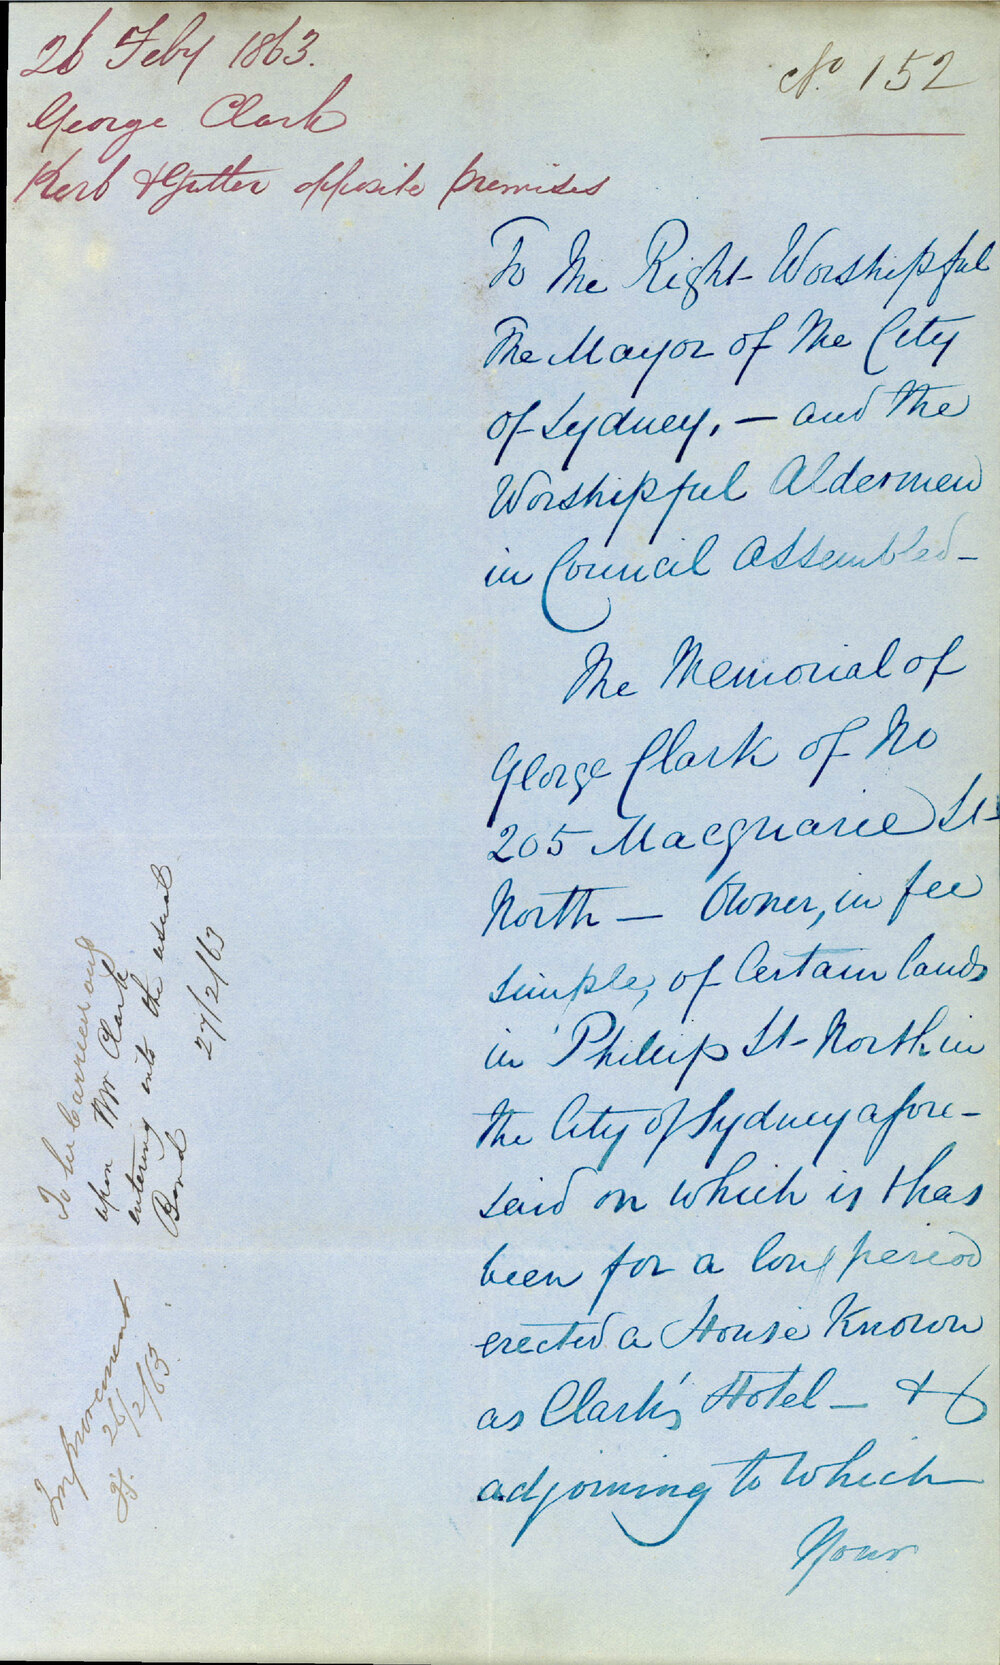 26 Feby 1863.
George Clark
Kerb & Gutter opposite premises
No. 152
To the Right Worshipful
The Mayor of the City
of Sydney, — and the
Worshipful Aldermen
in Council Assembled —
The Memorial of
George Clark of No
205 Macquarie St
North — Owner, in fee
simple, of Certain lands
in Phillip St - North in
the City of Sydney afore-
said on which is & has
been for a long period
erected a House Known
as Clark's Hotel — &
adjoining to which
Your
To be carried out
upon Mr Clark
entering into the usual
Bond
27/2/63
Improvement
26/2/63.